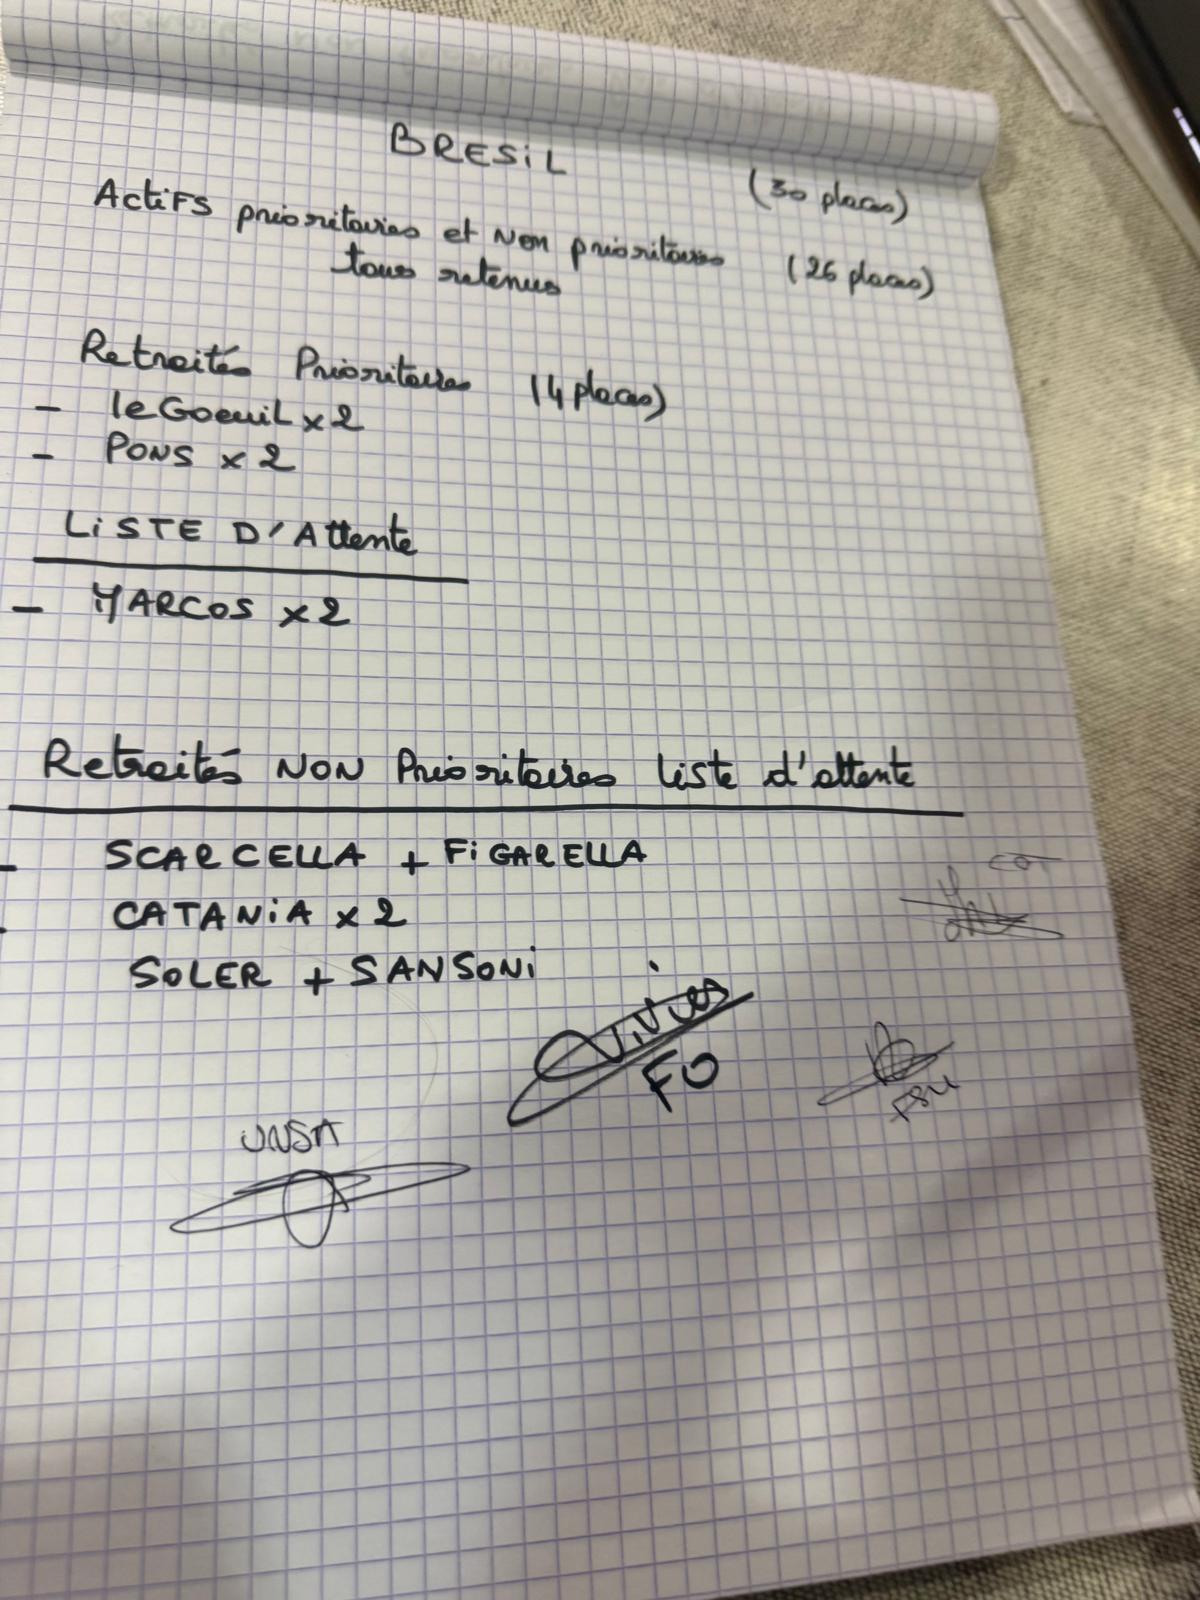 BRESiL (30 places)
ActiFS prioritaires et Non prioritaires (26 places)
tous retenus
Retraités Prioritaires (4 places)
- leGoeuiL x 2
- PONS x 2
LiSTE D'Attente
- MARCOS x 2
Retraités NON Prioritaires liste d'attente
- SCARCELLA + FiGARELLA
- CATANiA x 2
SOLER + SANSONi
FO
FSU
UNSA